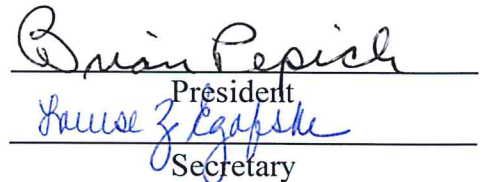 Brian Pepich
President
Louise Z
Secretary